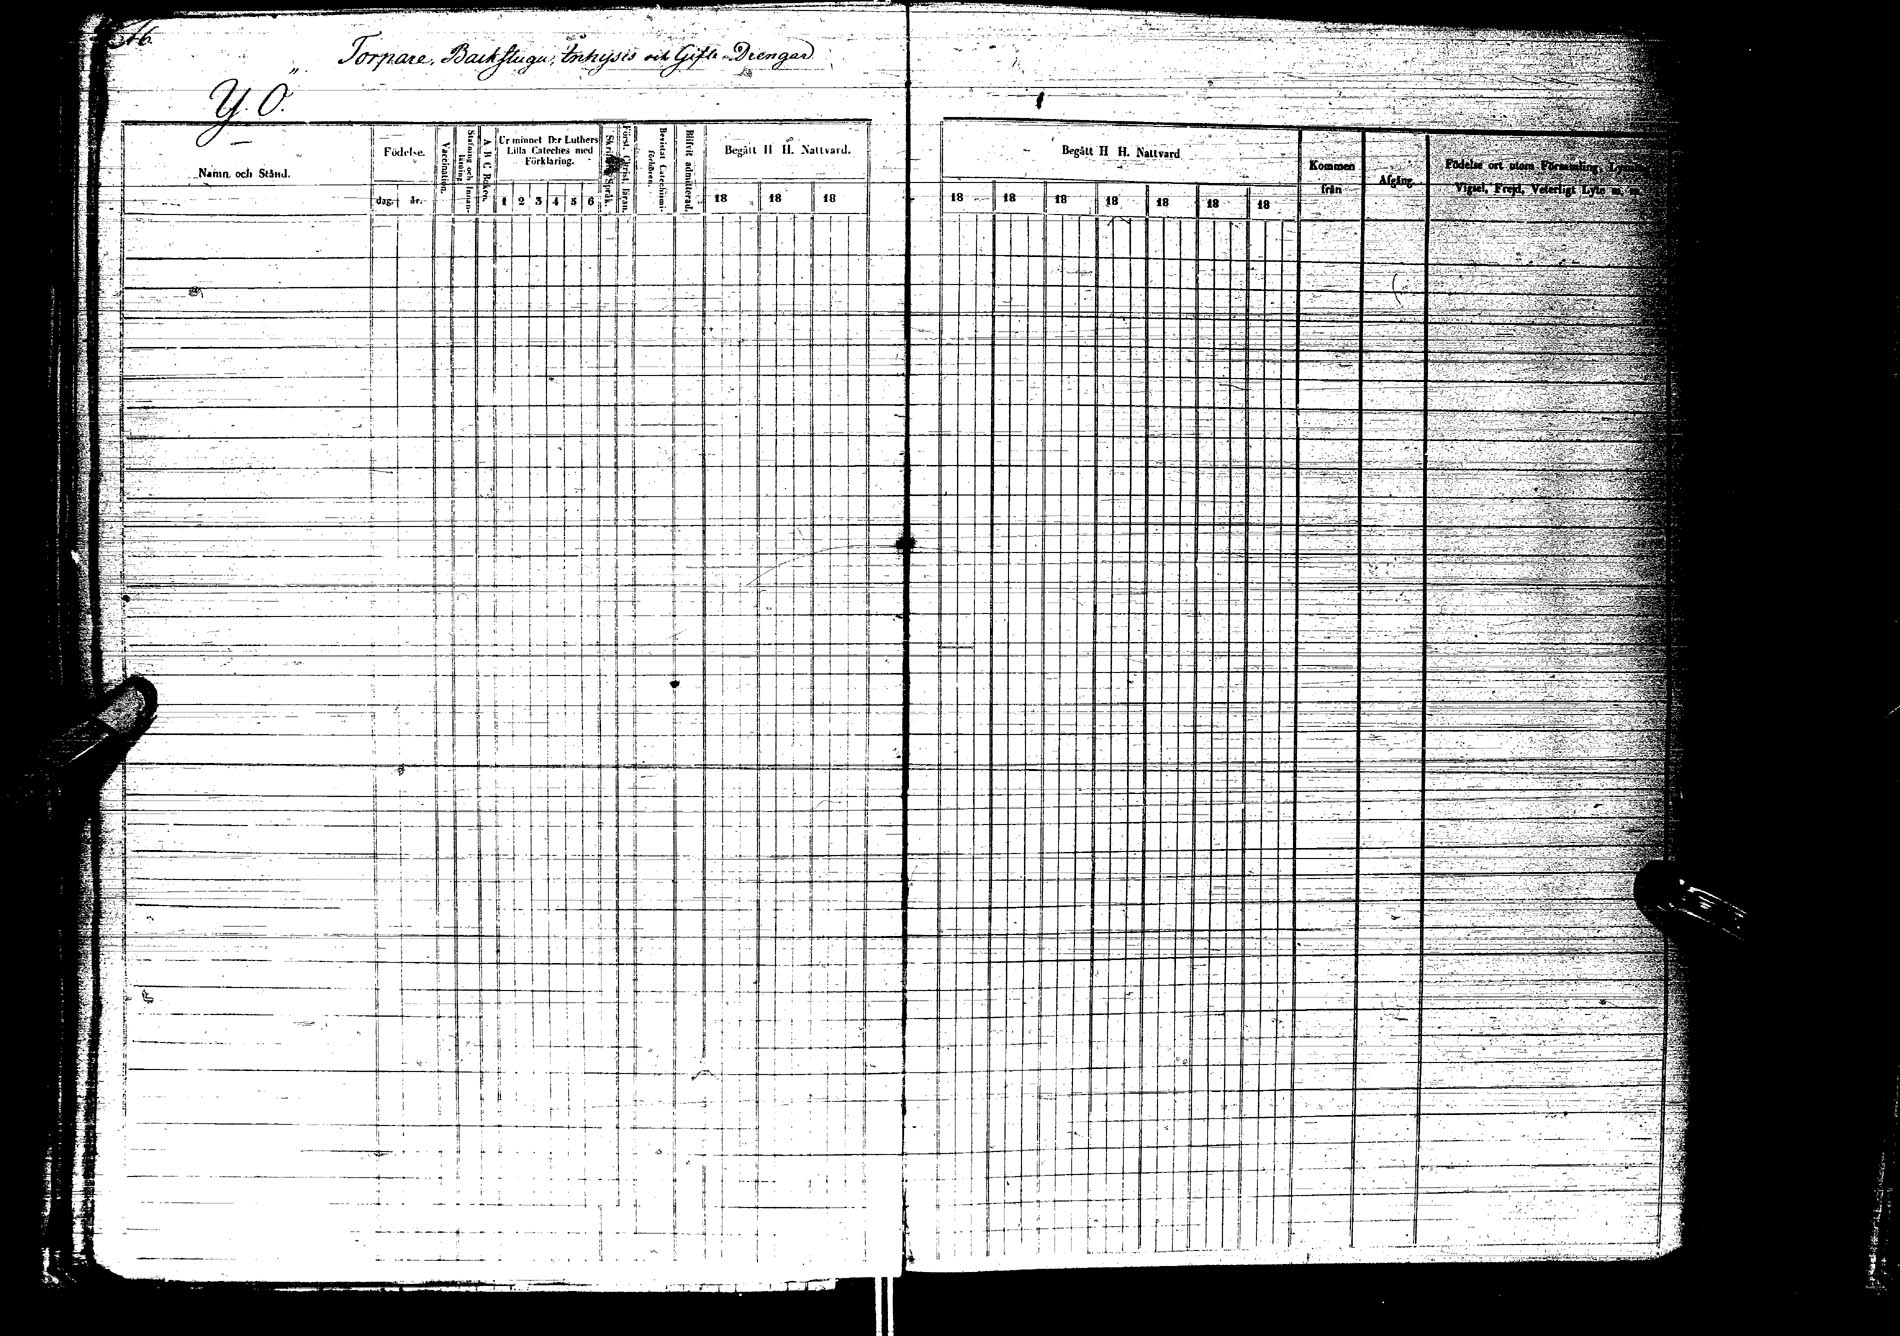 16.
Torpare, Backstugu, Inhysis och Gifte Drengar
Y O.
Namn och Stånd.
Födelse.
dag. år.
Vaccination.
Stafning och Innanläsning
A B C Boken.
Ur minnet D:r Luthers Lilla Cateches med Förklaring.
1 2 3 4 5 6
Språk.
Först. Christ. läran.
Bevistat Catechismiförhören.
Blifvit admitterad.
Begått H H. Nattvard.
18 18 18
Begått H H. Nattvard
18 18 18 18 18 18 18
Kommen från
Afgång.
Födelse ort utom Församling,
Vigsel, Frejd, Veterligt Lyte m. m.